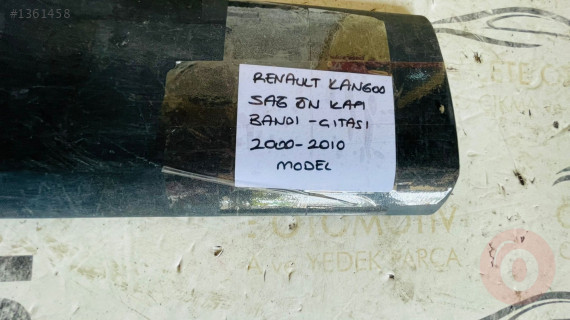 #1361458
RENAULT KANGOO
SAĞ ÖN KAPI
BANDI - ÇITASI
2000-2010
MODEL
OTOMOTİV
YEDEK PARÇA